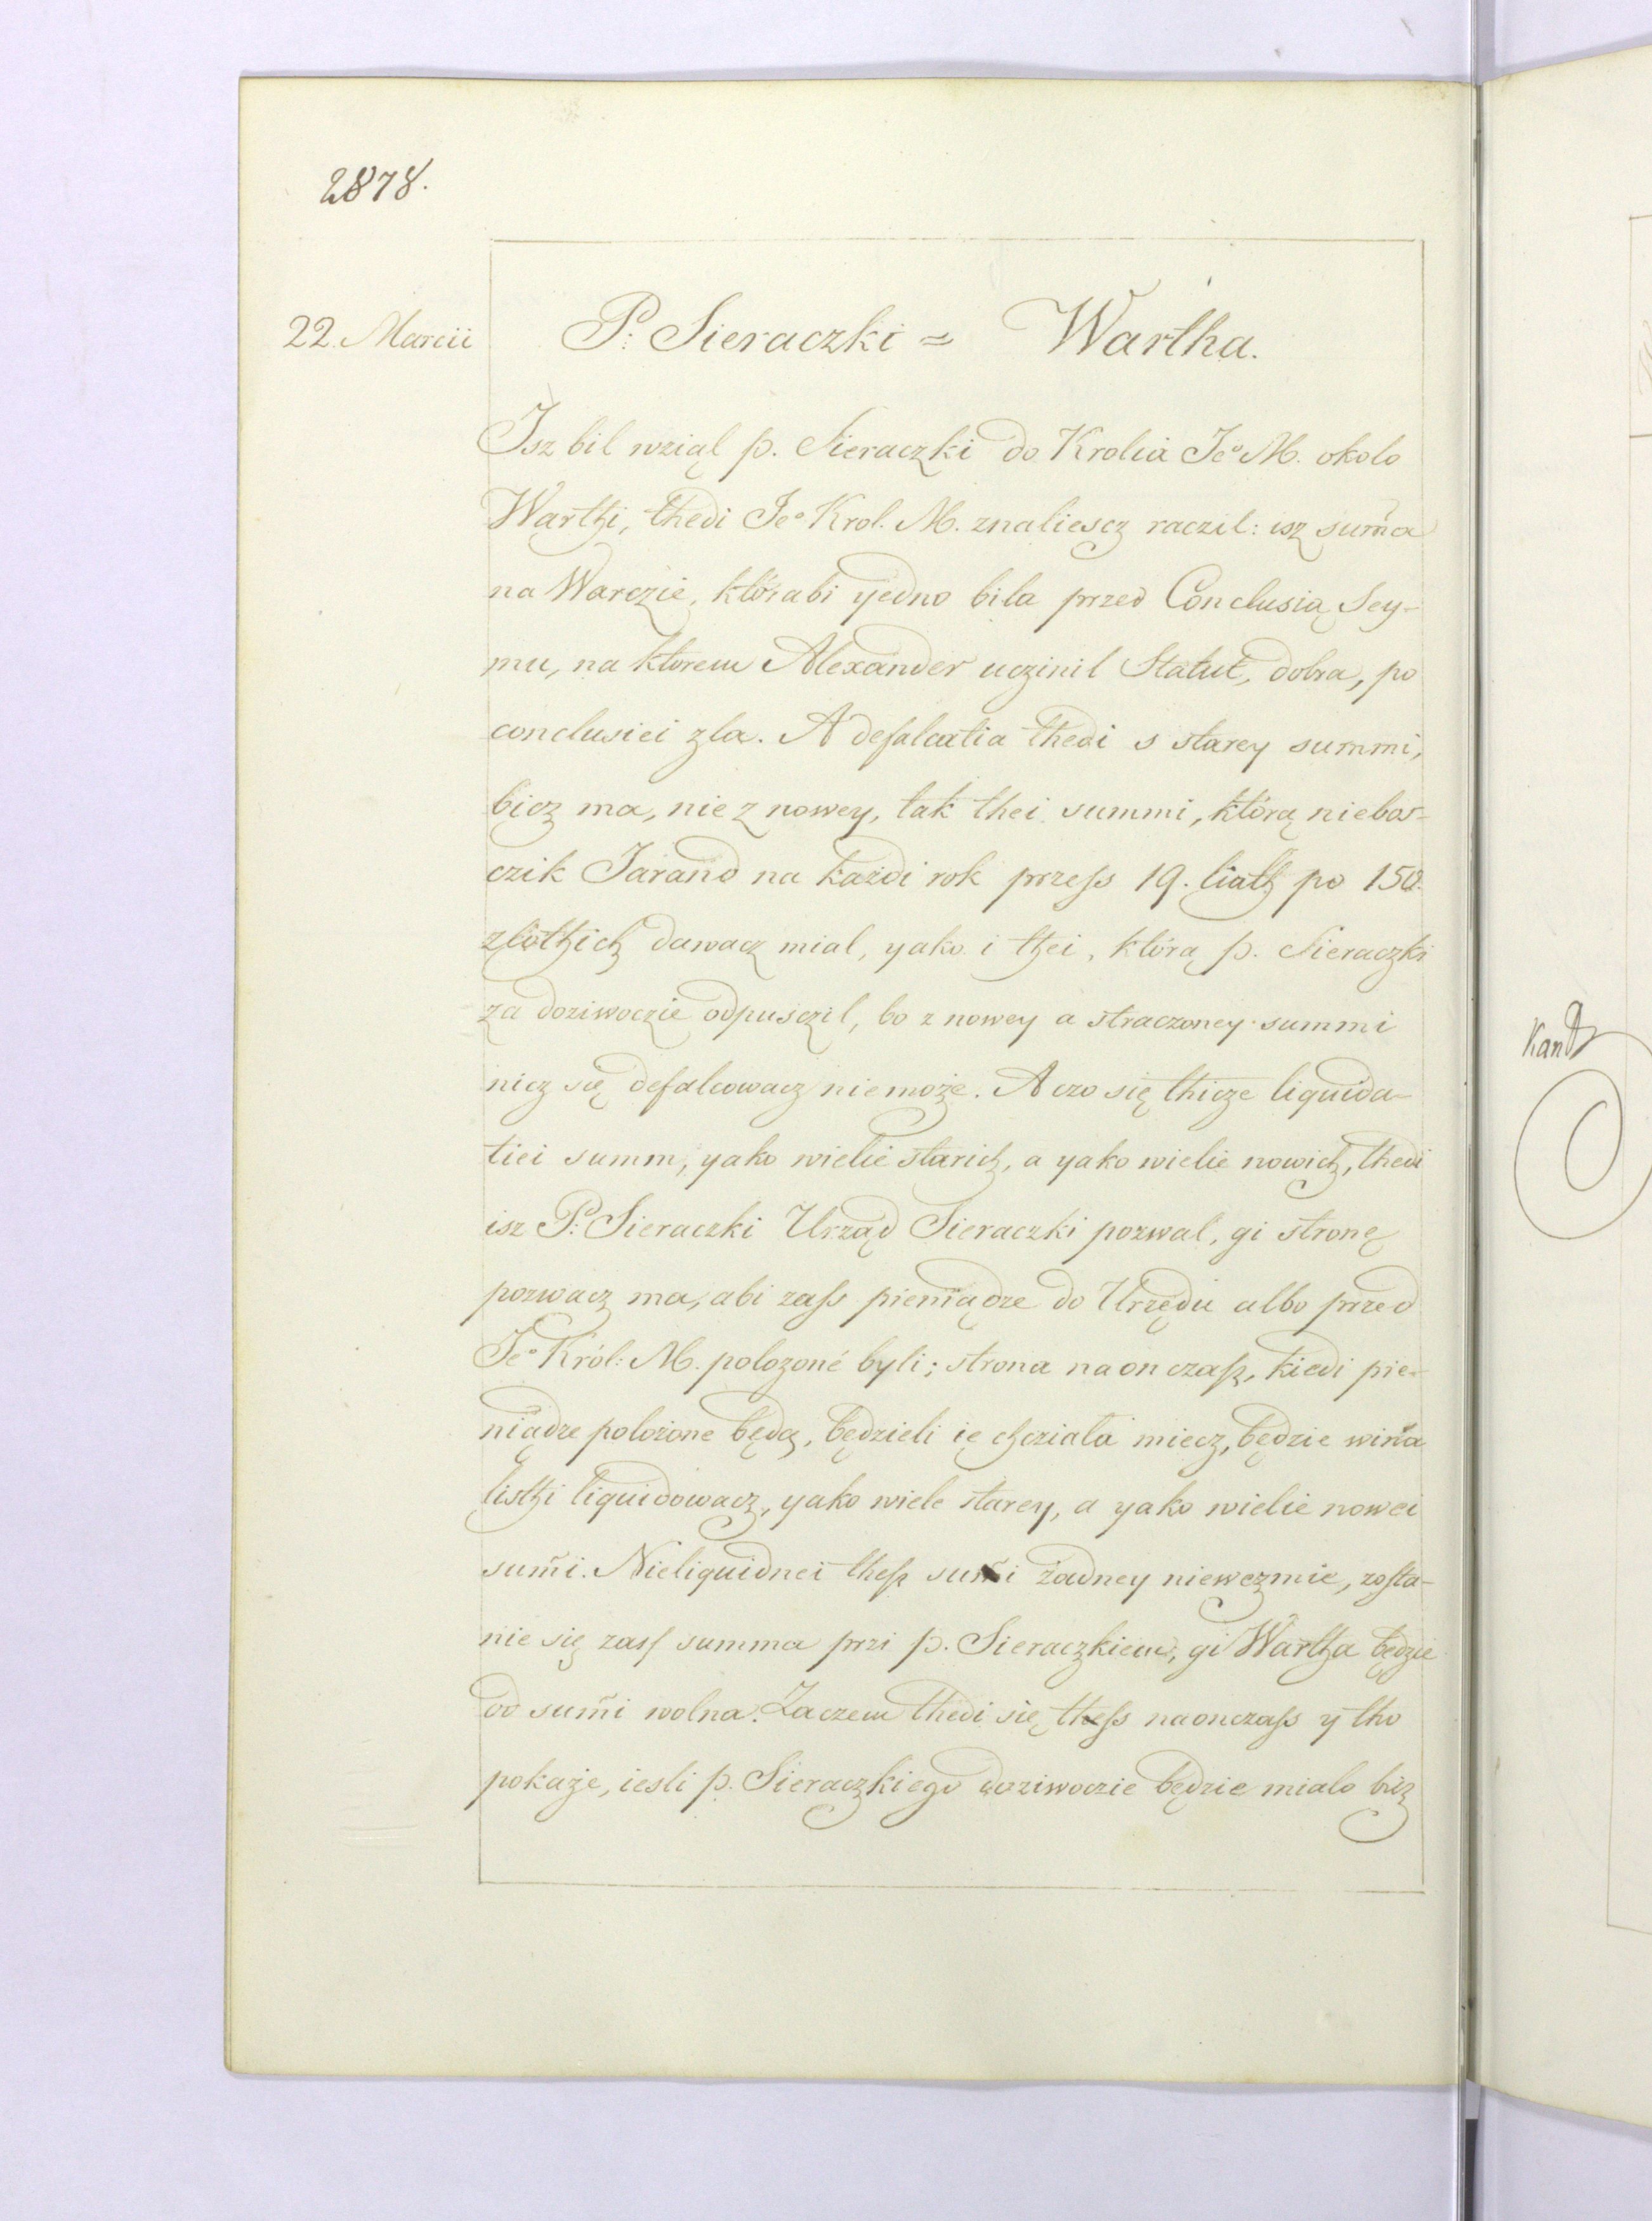 2878.
22. Marcii
P: Sieraczki = Wartha.
Isz bil wziąl p. Sieraczki do Krolia Jeº M. okolo
Warthi, thedi Jeº Krol. M. znaliescz raczil: isz sum̃a
na Warczie, którabi yedno bila przed Conclusią Sey-
mu, na ktorem Alexander uczinil Statut, dobra, po
conclusiei zla. A defalcatia thedi s starey summi,
bicz ma, nie z nowey, tak thei summi, którą niebos-
czik Jarand na każdi rok przess 19. liath po 150.
zlothich dawacz mial, yako i thei, którą p. Sieraczki
za doziwoczie odpusczil, bo z nowey a straczoney summi
nicz się defalcowacz niemoże. A czo się thicze liquida-
tiei summ, yako wielie starich, a yako wielie nowich, thedi
isz P: Sieraczki Urząd Sieraczki pozwal, gi stronę
pozwacz ma, abi zass pieniądze do Urzędu albo przed
Jeº Król: M. polozoné byli; strona na on czass, kiedi pie-
niądze polozone będą, będzieli ię chcziala miecz, będzie win̄a
listhi liquidowacz, yako wiele starey, a yako wielie nowei
sum̃i. Nieliquidnei thesz sum̃i żadney niewezmie, zosta-
nie się zass summa przi p. Sieraczkiem, gi Wartha będzie
od sum̃i wolna. Zaczem thedi się thess naonczass y tho
pokaże, iesli p. Sieraczkiego doziwoczie będzie mialo bicz
Kan